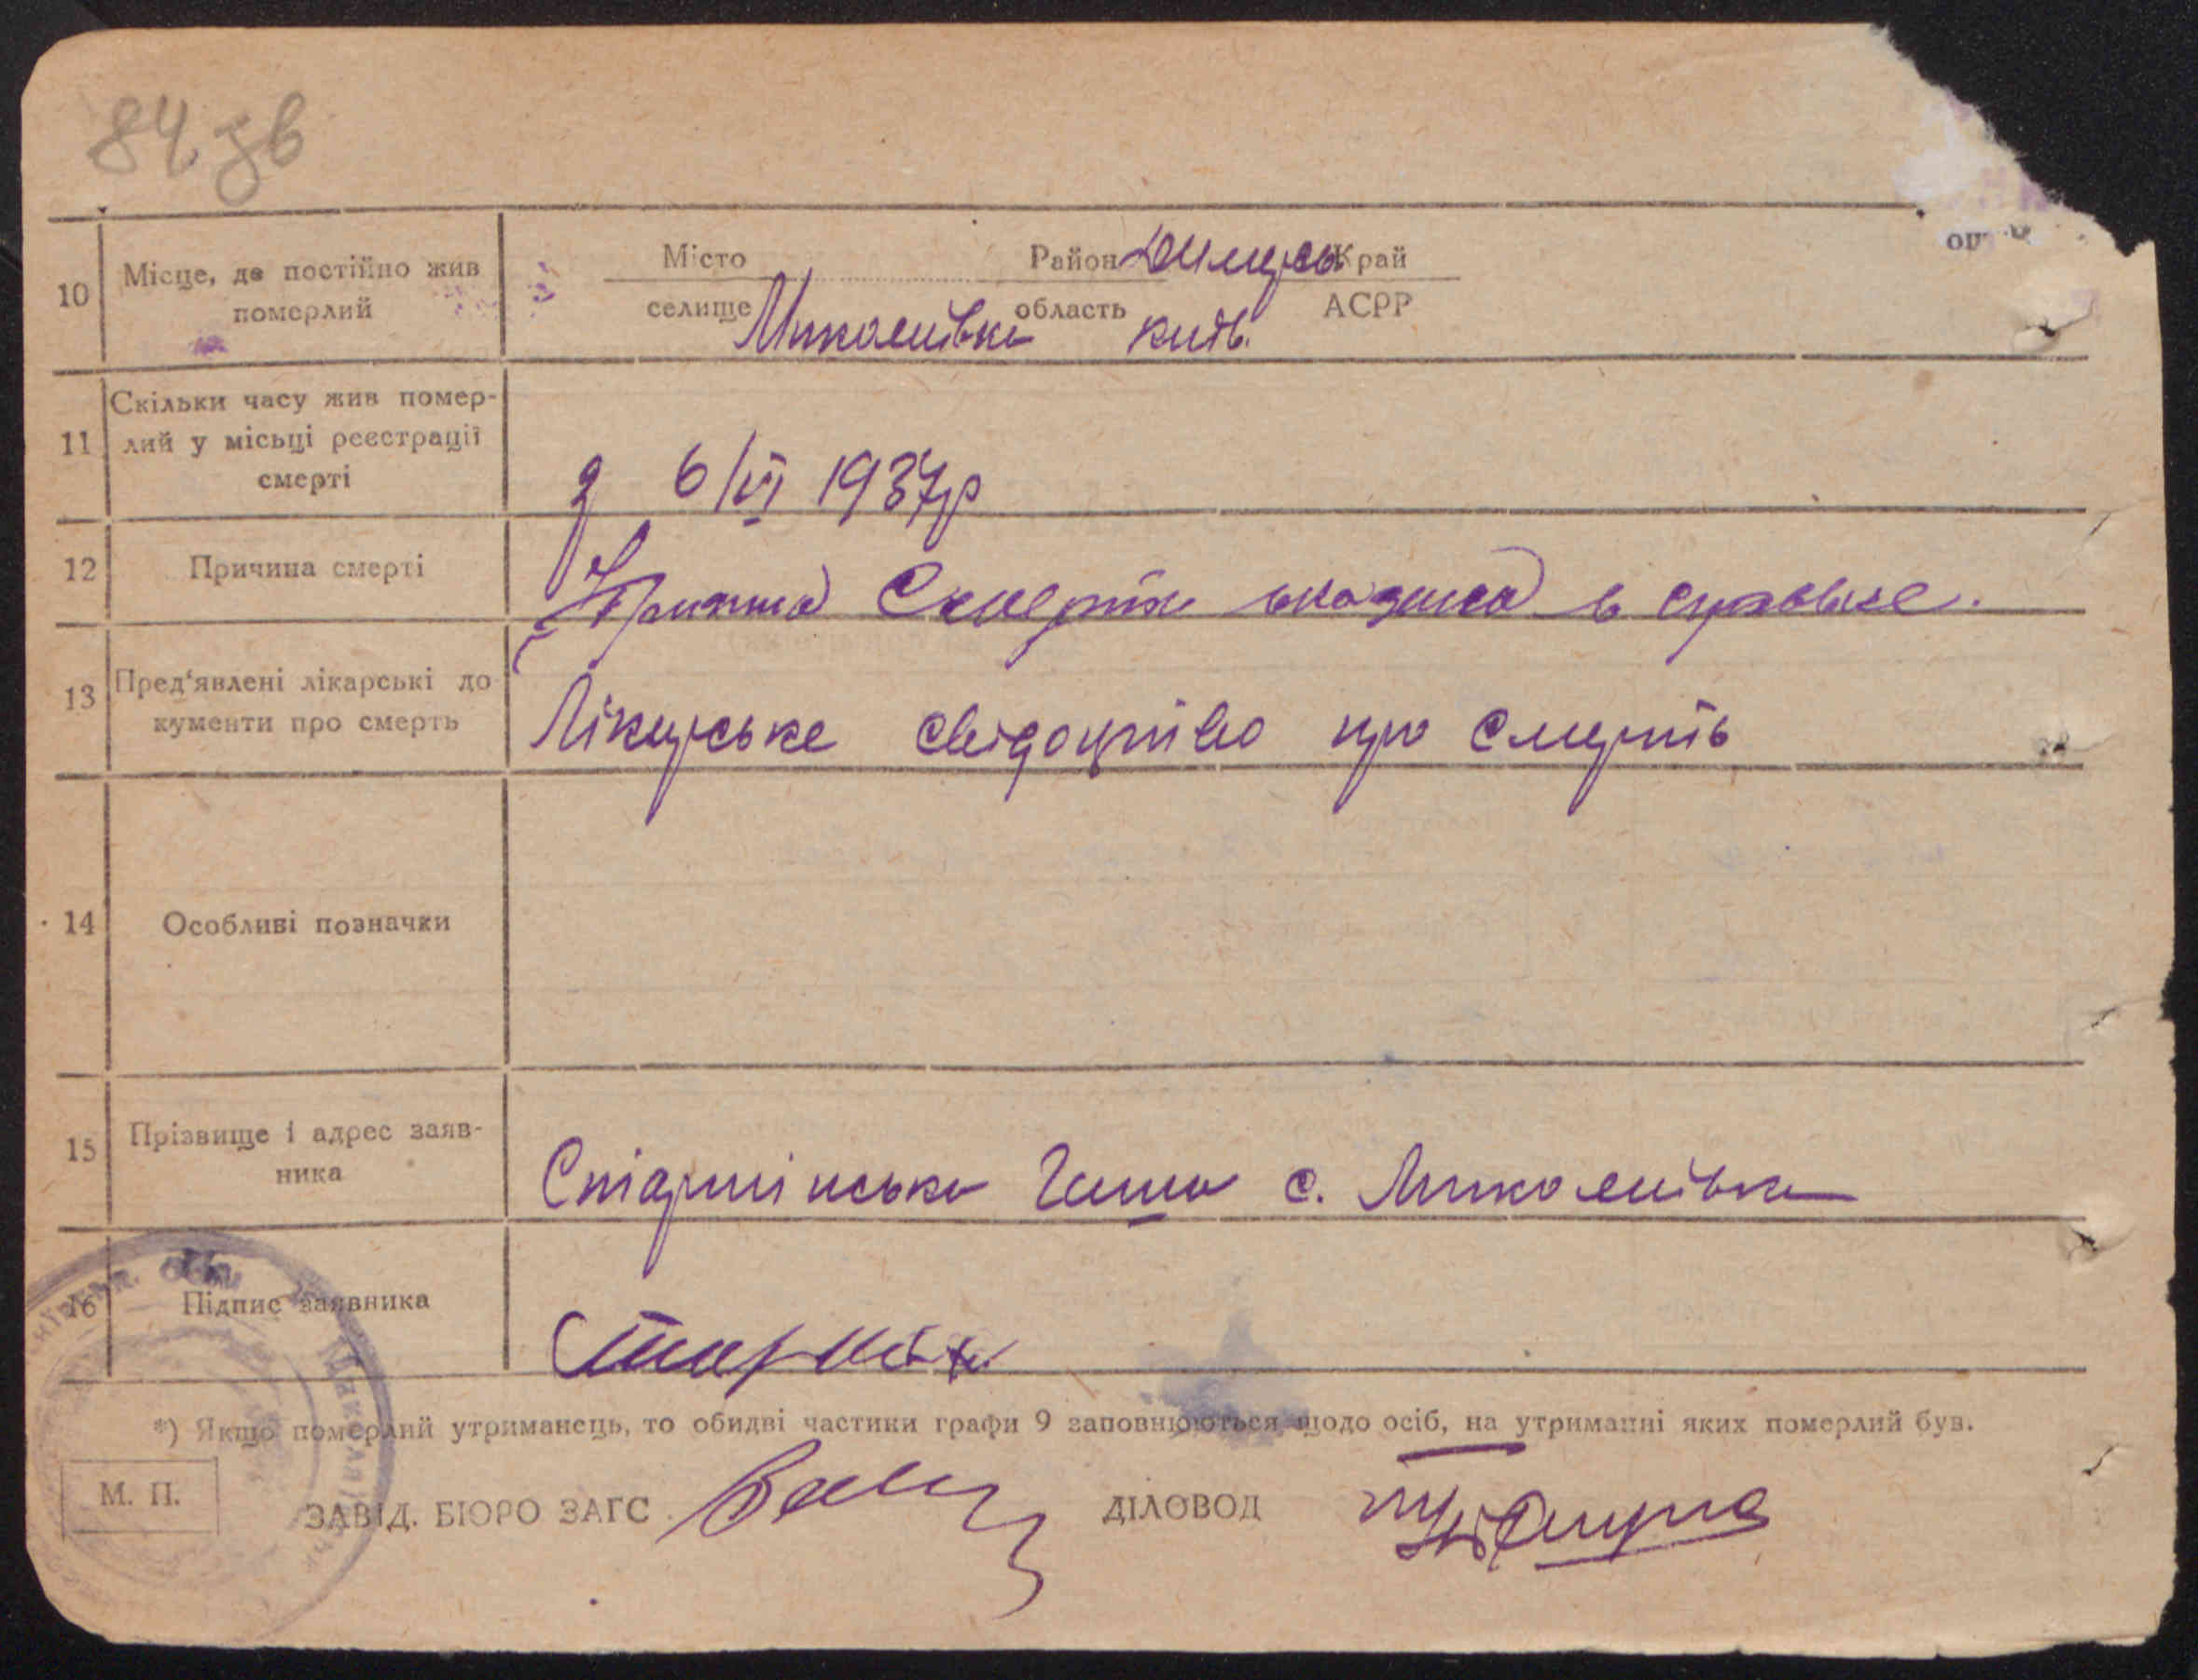 84 зв
10 Місце, де постійно жив померлий
Місто Район Димерсь Край
селище Миколаївка область київ. АСРР
11 Скільки часу жив помер-
лий у місьці реєстрації
смерті
з 6/VI 1937р
12 Причина смерті
смерти указана в справке.
13 Пред'явлені лікарські до
кументи про смерть
Лікарське свідоцтво про смерть
14 Особливі позначки
15 Прізвище і адрес заяв-
ника
с. Миколаївка
16 Підпис заявника
*) Якщо померлий утриманець, то обидві частини графи 9 заповнюються щодо осіб, на утриманні яких померлий був.
М. П.
ЗАВІД. БЮРО ЗАГС ДІЛОВОД